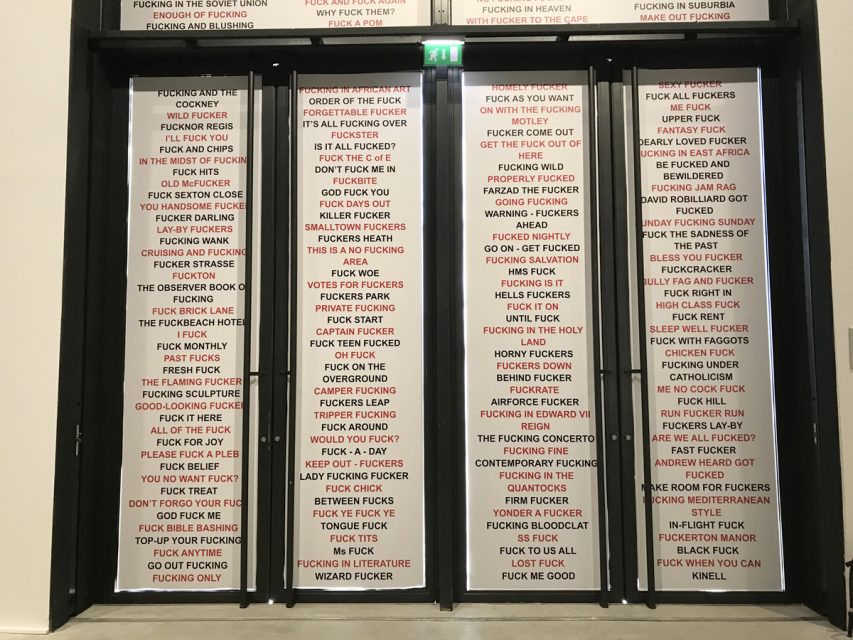 FUCKING IN THE SOVIET UNION
ENOUGH OF FUCKING
FUCKING AND BLUSHING
FUCK AND FUCK AGAIN
WHY FUCK THEM?
FUCK A POM
FUCKING IN HEAVEN
WITH FUCKER TO THE CAPE
FUCKING IN SUBURBIA
MAKE OUT FUCKING
FUCKING AND THE
COCKNEY
WILD FUCKER
FUCKNOR REGIS
I'LL FUCK YOU
FUCK AND CHIPS
IN THE MIDST OF FUCKIN
FUCK HITS
OLD McFUCKER
FUCK SEXTON CLOSE
YOU HANDSOME FUCKE
FUCKER DARLING
LAY-BY FUCKERS
FUCKING WANK
CRUISING AND FUCKING
FUCKER STRASSE
FUCKTON
THE OBSERVER BOOK O
FUCKING
FUCK BRICK LANE
THE FUCKBEACH HOTEL
I FUCK
FUCK MONTHLY
PAST FUCKS
FRESH FUCK
THE FLAMING FUCKER
FUCKING SCULPTURE
GOOD-LOOKING FUCKER
FUCK IT HERE
ALL OF THE FUCK
FUCK FOR JOY
PLEASE FUCK A PLEB
FUCK BELIEF
YOU NO WANT FUCK?
FUCK TREAT
DON'T FORGO YOUR FUC
GOD FUCK ME
FUCK BIBLE BASHING
TOP-UP YOUR FUCKING
FUCK ANYTIME
GO OUT FUCKING
FUCKING ONLY
FUCKING IN AFRICAN ART
ORDER OF THE FUCK
FORGETTABLE FUCKER
IT'S ALL FUCKING OVER
FUCKSTER
IS IT ALL FUCKED?
FUCK THE C of E
DON'T FUCK ME IN
FUCKBITE
GOD FUCK YOU
FUCK DAYS OUT
KILLER FUCKER
SMALLTOWN FUCKERS
FUCKERS HEATH
THIS IS A NO FUCKING
AREA
FUCK WOE
VOTES FOR FUCKERS
FUCKERS PARK
PRIVATE FUCKING
FUCK START
CAPTAIN FUCKER
FUCK TEEN FUCKED
OH FUCK
FUCK ON THE
OVERGROUND
CAMPER FUCKING
FUCKERS LEAP
TRIPPER FUCKING
FUCK AROUND
WOULD YOU FUCK?
FUCK - A - DAY
KEEP OUT - FUCKERS
LADY FUCKING FUCKER
FUCK CHICK
BETWEEN FUCKS
FUCK YE FUCK YE
TONGUE FUCK
FUCK TITS
Ms FUCK
FUCKING IN LITERATURE
WIZARD FUCKER
HOMELY FUCKER
FUCK AS YOU WANT
ON WITH THE FUCKING
MOTLEY
FUCKER COME OUT
GET THE FUCK OUT OF
HERE
FUCKING WILD
PROPERLY FUCKED
FARZAD THE FUCKER
GOING FUCKING
WARNING - FUCKERS
AHEAD
FUCKED NIGHTLY
GO ON - GET FUCKED
FUCKING SALVATION
HMS FUCK
FUCKING IS IT
HELLS FUCKERS
FUCK IT ON
UNTIL FUCK
FUCKING IN THE HOLY
LAND
HORNY FUCKERS
FUCKERS DOWN
BEHIND FUCKER
FUCKRATE
AIRFORCE FUCKER
FUCKING IN EDWARD VII
REIGN
THE FUCKING CONCERTO
FUCKING FINE
CONTEMPORARY FUCKING
FUCKING IN THE
QUANTOCKS
FIRM FUCKER
YONDER A FUCKER
FUCKING BLOODCLAT
SS FUCK
FUCK TO US ALL
LOST FUCK
FUCK ME GOOD
SEXY FUCKER
FUCK ALL FUCKERS
ME FUCK
UPPER FUCK
FANTASY FUCK
DEARLY LOVED FUCKER
FUCKING IN EAST AFRICA
BE FUCKED AND
BEWILDERED
FUCKING JAM RAG
DAVID ROBILLIARD GOT
FUCKED
UNDAY FUCKING SUNDAY
FUCK THE SADNESS OF
THE PAST
BLESS YOU FUCKER
FUCKCRACKER
BULLY FAG AND FUCKER
FUCK RIGHT IN
HIGH CLASS FUCK
FUCK RENT
SLEEP WELL FUCKER
FUCK WITH FAGGOTS
CHICKEN FUCK
FUCKING UNDER
CATHOLICISM
ME NO COCK FUCK
FUCK HILL
RUN FUCKER RUN
FUCKERS LAY-BY
ARE WE ALL FUCKED?
FAST FUCKER
ANDREW HEARD GOT
FUCKED
MAKE ROOM FOR FUCKERS
FUCKING MEDITERRANEAN
STYLE
IN-FLIGHT FUCK
FUCKERTON MANOR
BLACK FUCK
FUCK WHEN YOU CAN
KINELL